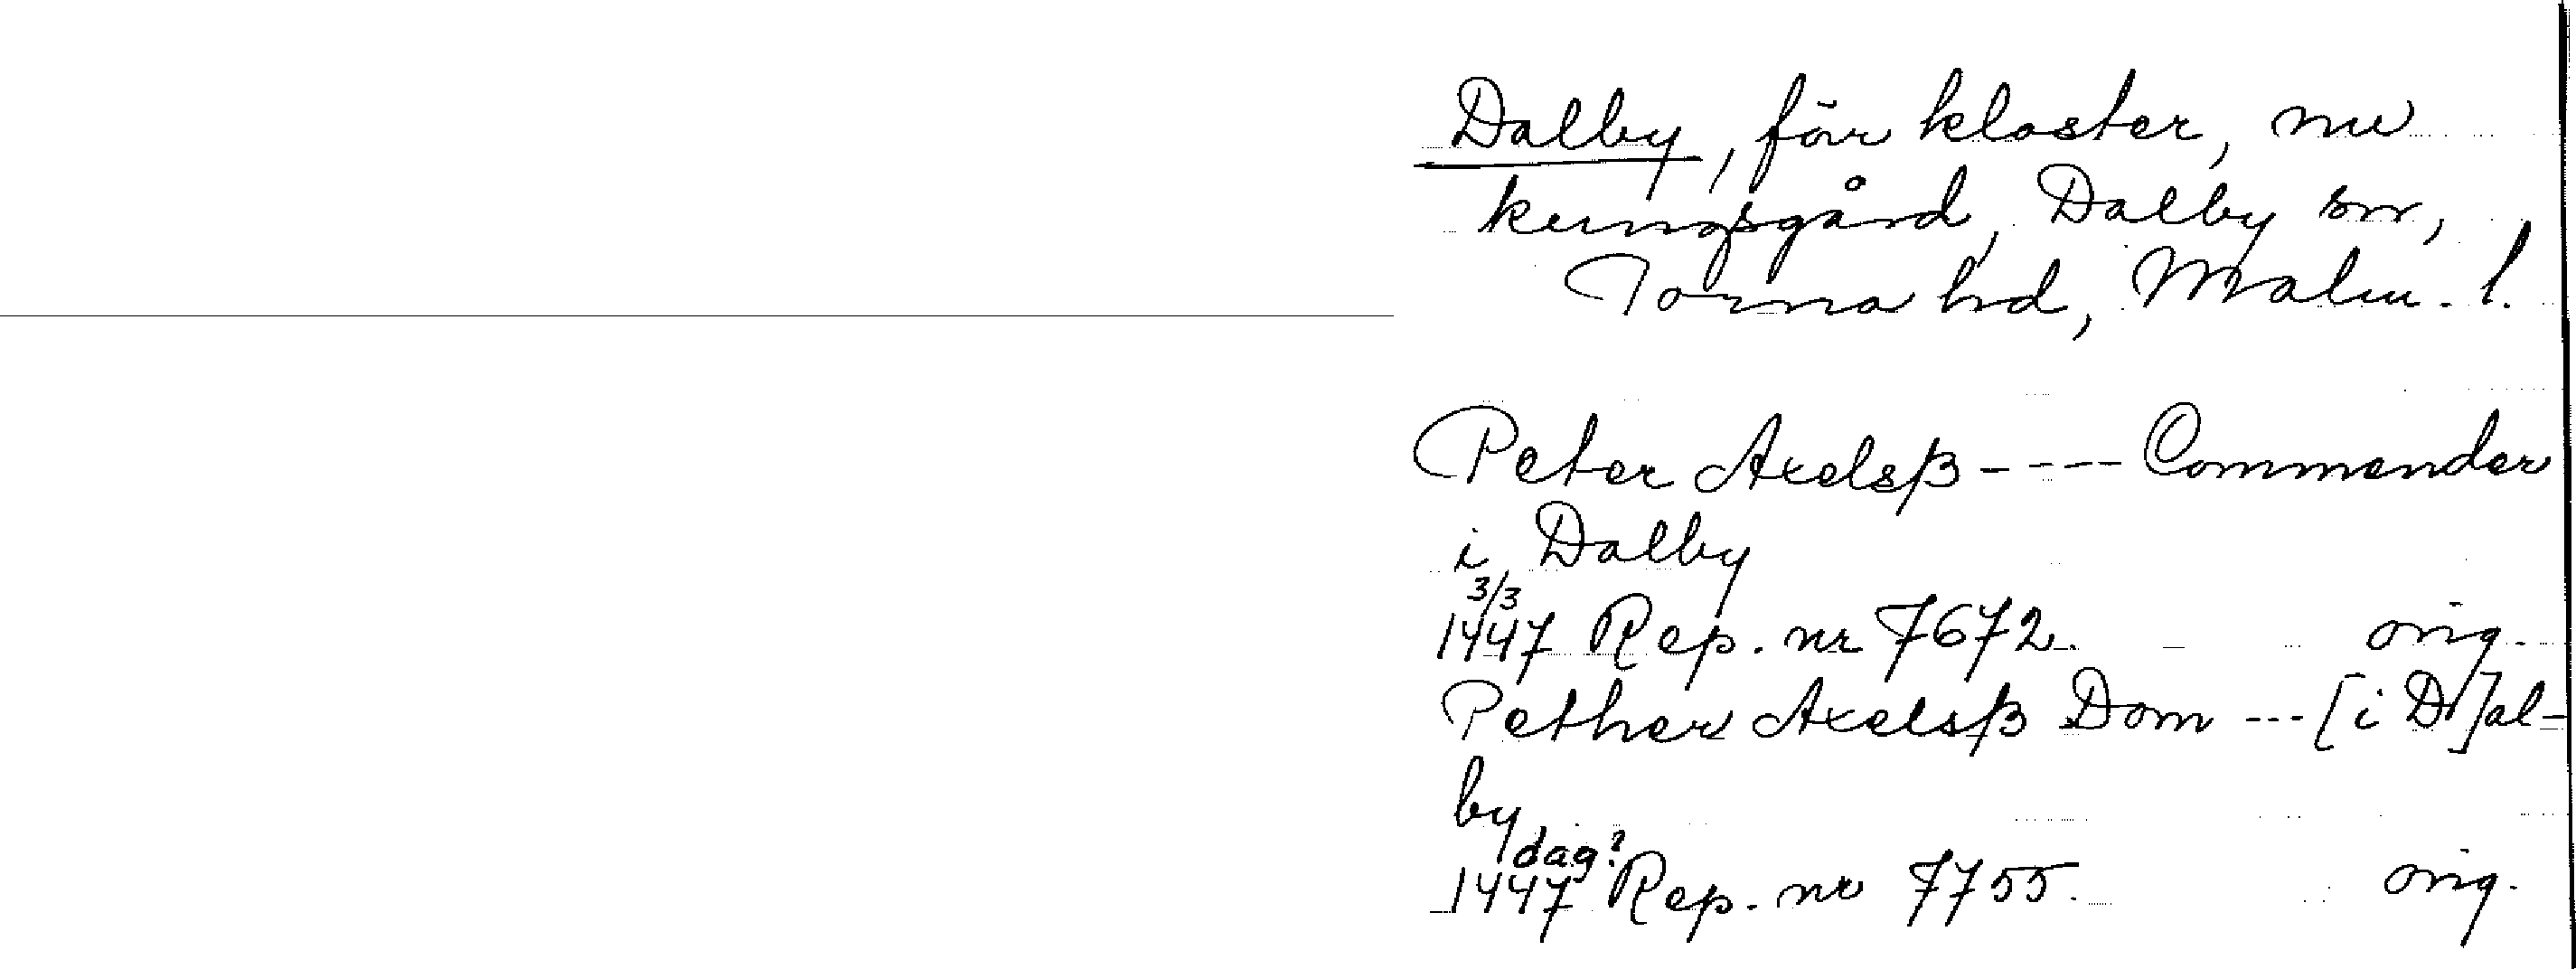 Dalby, förr kloster, nu
kungsgård, Dalby sn,
Torna hd, Malm. l.
Peter Axelsß ---- Commender
i Dalby
3/3
1447 Rep. nr 7672. orig.
Pether Axelsß Dom --- [i D]al-
by
dag?
1447 Rep. nr 7755. orig.